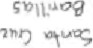 Santa Cruz
Barillas